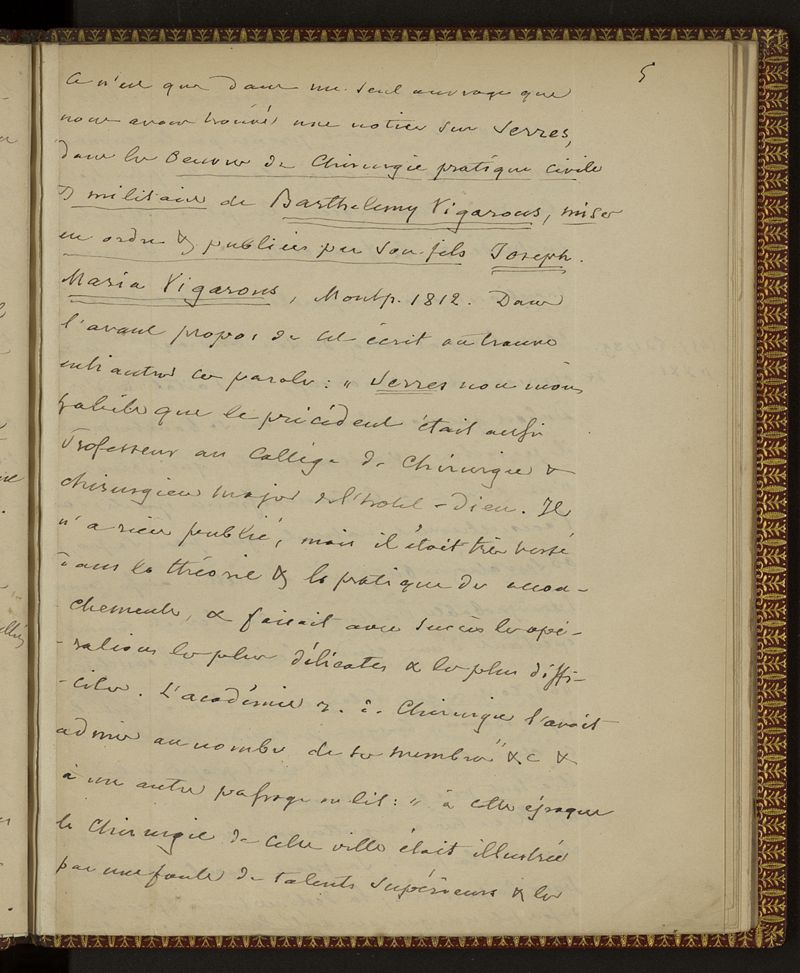 5
Ce n'est que dans un seul ouvrage que
nous avons trouvé une notice sur Serres,
dans les Oeuvres de Chirurgie pratique civile
& militaire de Barthelemy Vigarous, mises
en ordre & publiées par son fils Joseph.
Marie Vigarous, Montp. 1812. Dans
l'avant propos de cet écrit on trouve
entr'autres ces paroles: "Serres non moins
habile que le précédent était aussi
Professeur au Collége de Chirurgie &
chirurgien major de l'hotel-Dieu. Il
n'a rien publié, mais il était très versé
dans la théorie & la pratique des accou-
chements, & faisait avec succès les opé-
-rations les plus délicates & les plus diffi-
-ciles. L'académie r. d. Chirurgie l'avait
admis au nombre de ses membres" &c &
à un autre passage on lit: "à cette époque
la Chirurgie de cette ville était illustrée
par une foule de talents supérieurs & les